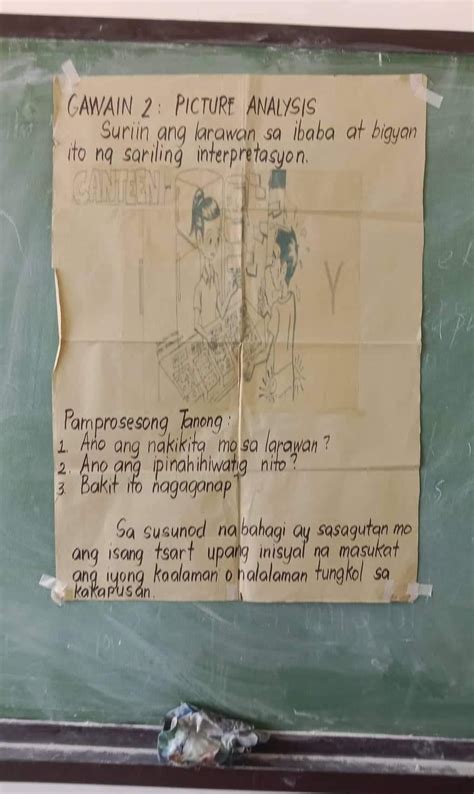 GAWAIN 2: PICTURE ANALYSIS
Suriin ang larawan sa ibaba at bigyan
ito ng sariling interpretasyon.
CANTEEN
Y
Pamprosesong Tanong:
1. Ano ang nakikita mo sa larawan?
2. Ano ang ipinahihiwatig nito?
3. Bakit ito nagaganap
Sa susunod na bahagi ay sasagutan mo
ang isang tsart upang inisyal na masukat
ang iyong kaalaman o nalalaman tungkol sa
kakapusan.